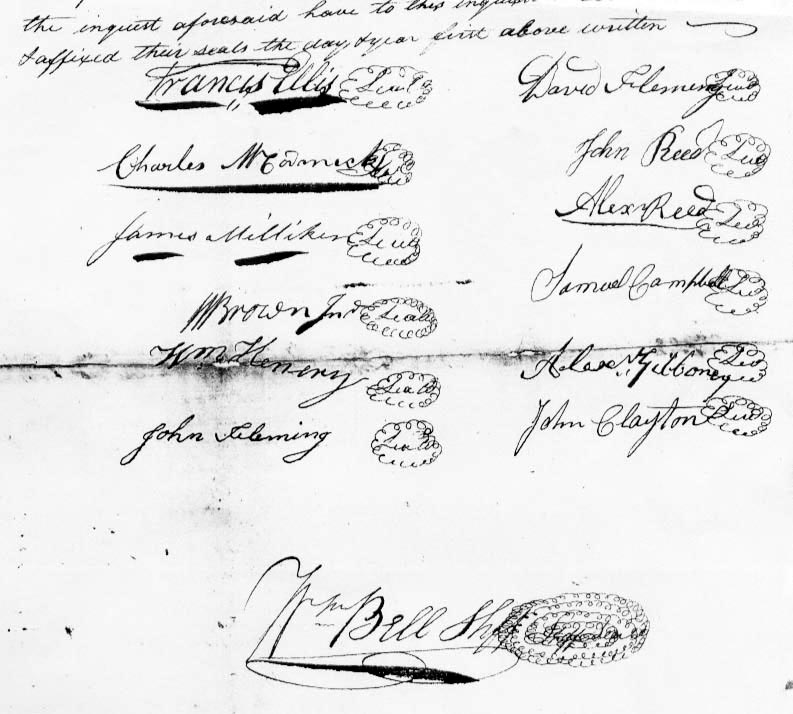 the inquest aforesaid have to this
& affixed their seals the day & year first above written
Francis Ellis Seal
David Fleming Seal
Charles McCormick
John Reed Seal
James Milliken Seal
Alexr Reed Seal
W Brown Jnr Seal
Samuel Campbell Seal
Wm Henery Seal
Alexr Gibboney Seal
John Fleming Seal
John Clayton Seal
Wm Bell Shff